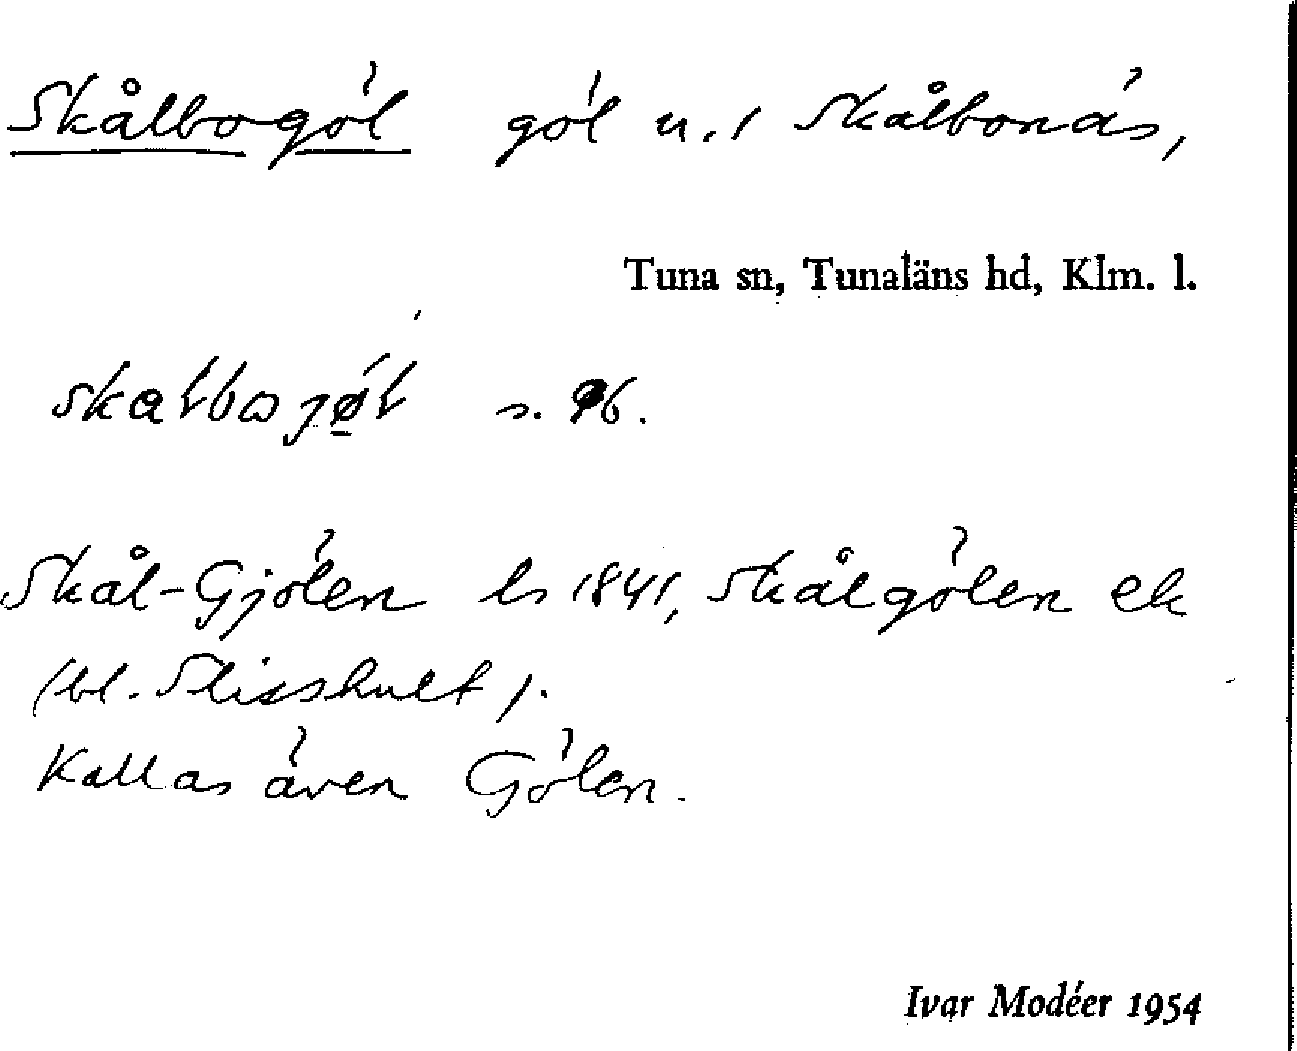 Skålbogöl göl u. / Skålbonäs,
Tuna sn, Tunaläns hd, Klm. l.
s. 96.
Skål-Gjölen ls 1841, Skålgölen ek
(bl. Slisshult).
Kallas även Gölen.
Ivar Modéer 1954